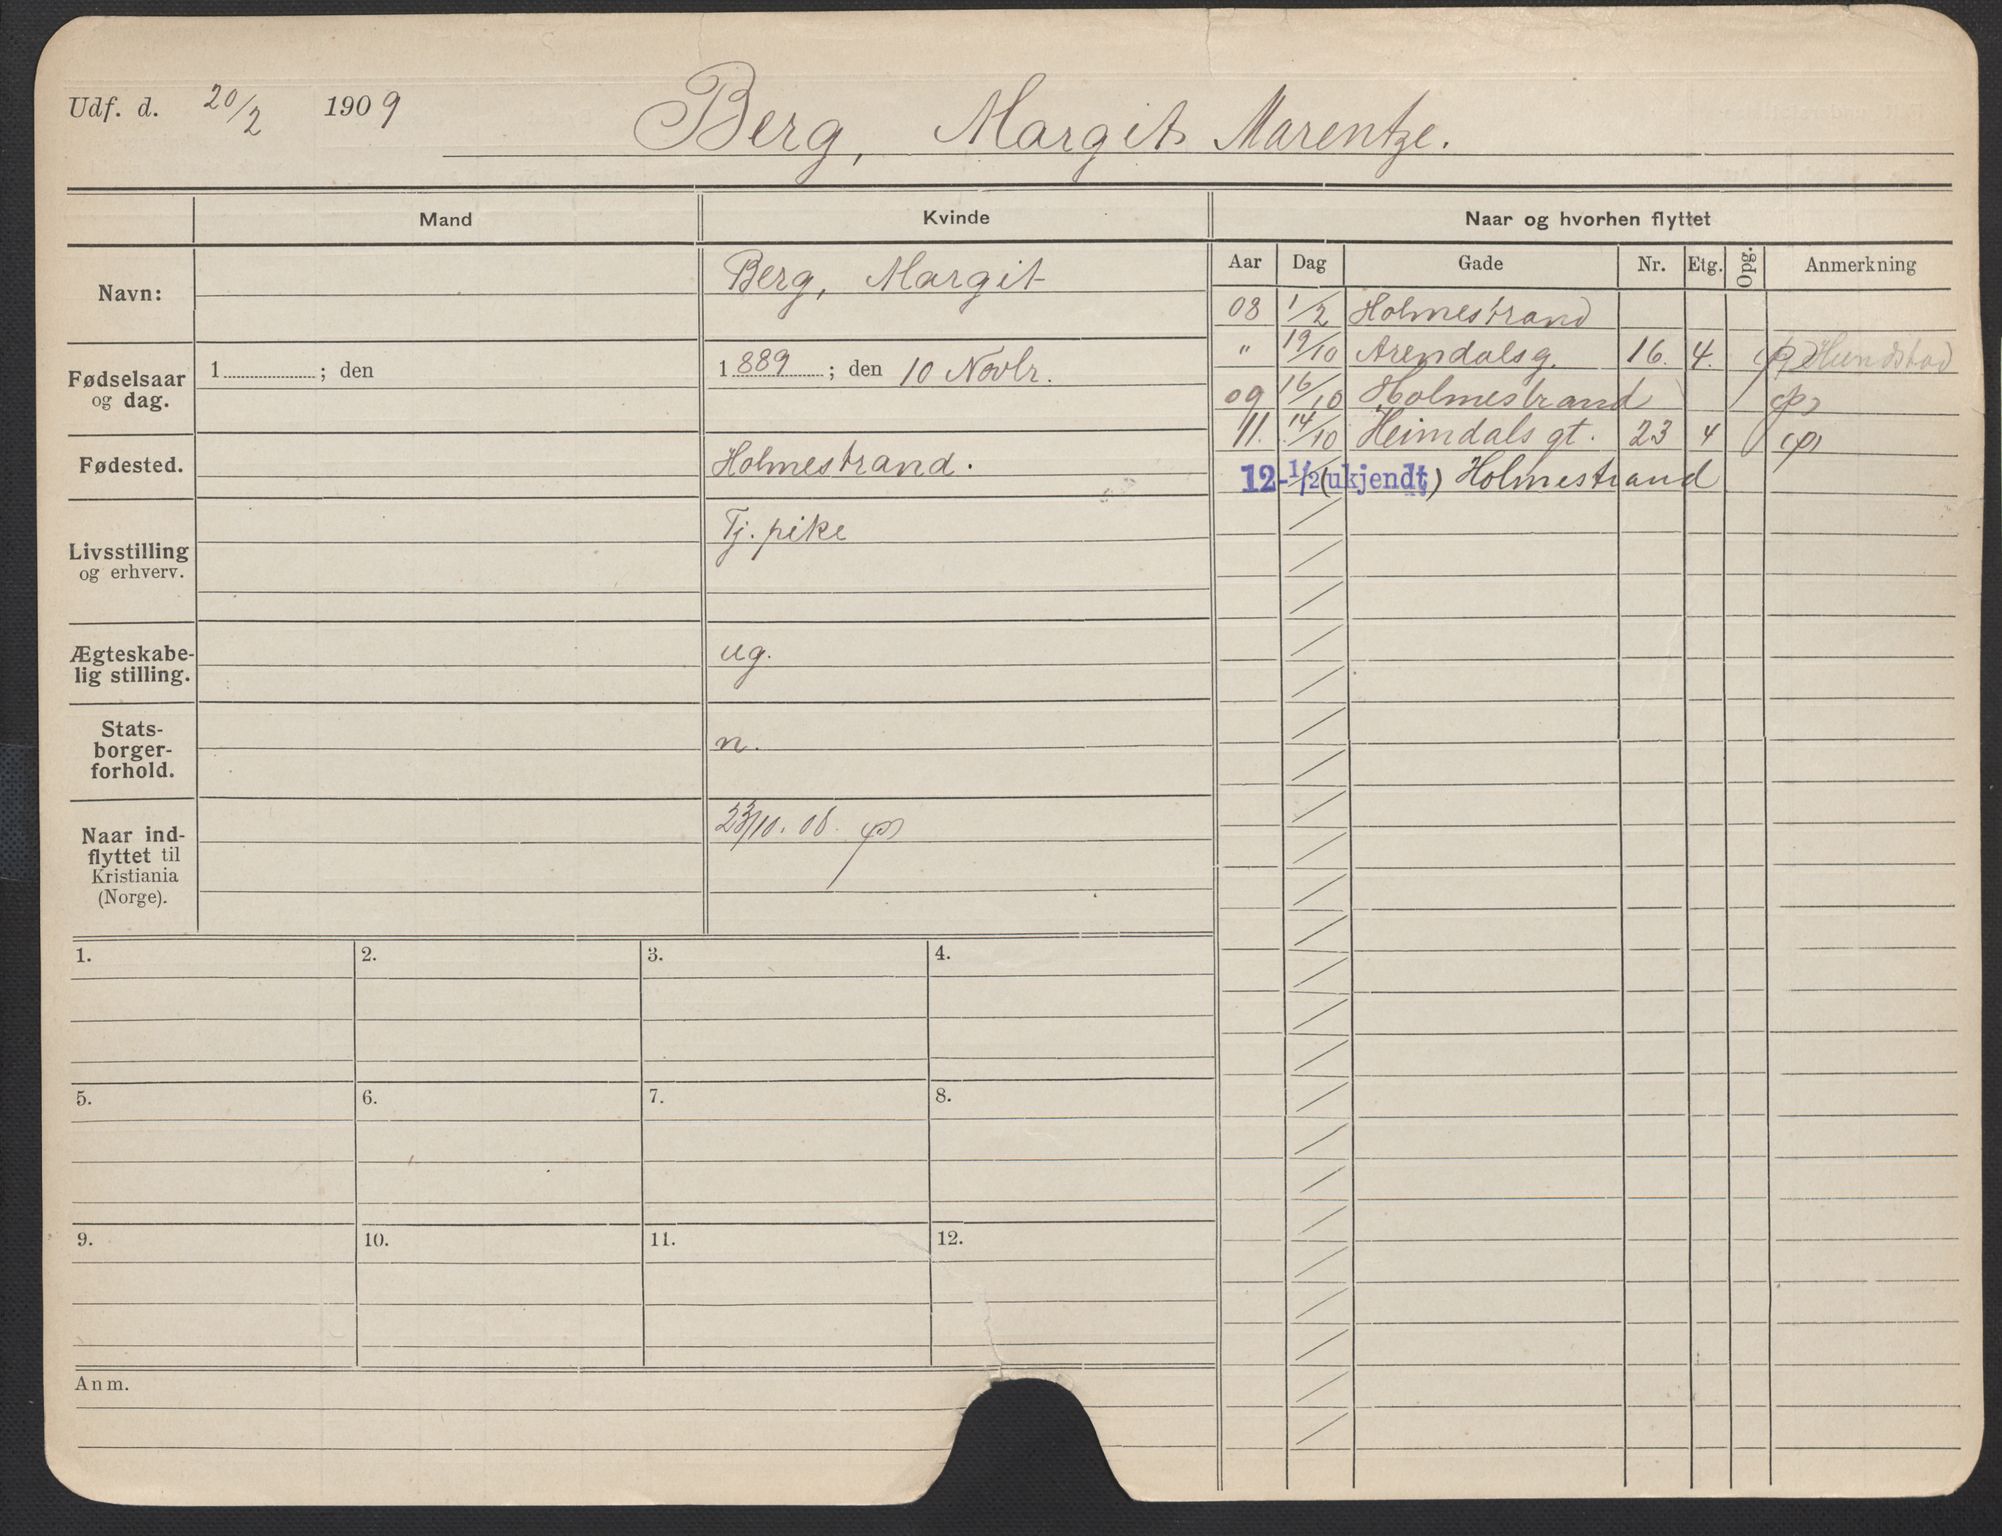 Udf. d. 20/2 1909 Berg, Margit Marentze.
Mand Kvinde Naar og hvorhen flyttet
Aar Dag Gade Nr. Etg. Opg. Anmerkning
Navn: Berg, Margit
08 1/2 Holmestrand
" 19/10 Arendalsg. 16. 4.
Fødselsaar
og dag. 1 ; den 1889 ; den 10 Novbr.
09 16/10 Holmestrand
11. 14/10 Heimdals gt. 23 4
Fødested. Holmestrand.
12-1/2 (ukjendt) Holmestrand
Livsstilling
og erhverv. Tj. pike
Ægteskabe-
lig stilling. ug.
Stats-
borger-
forhold. n.
Naar ind-
flyttet til
Kristiania
(Norge). /10. 08.
1. 2. 3. 4.
5. 6. 7. 8.
9. 10. 11. 12.
Anm.